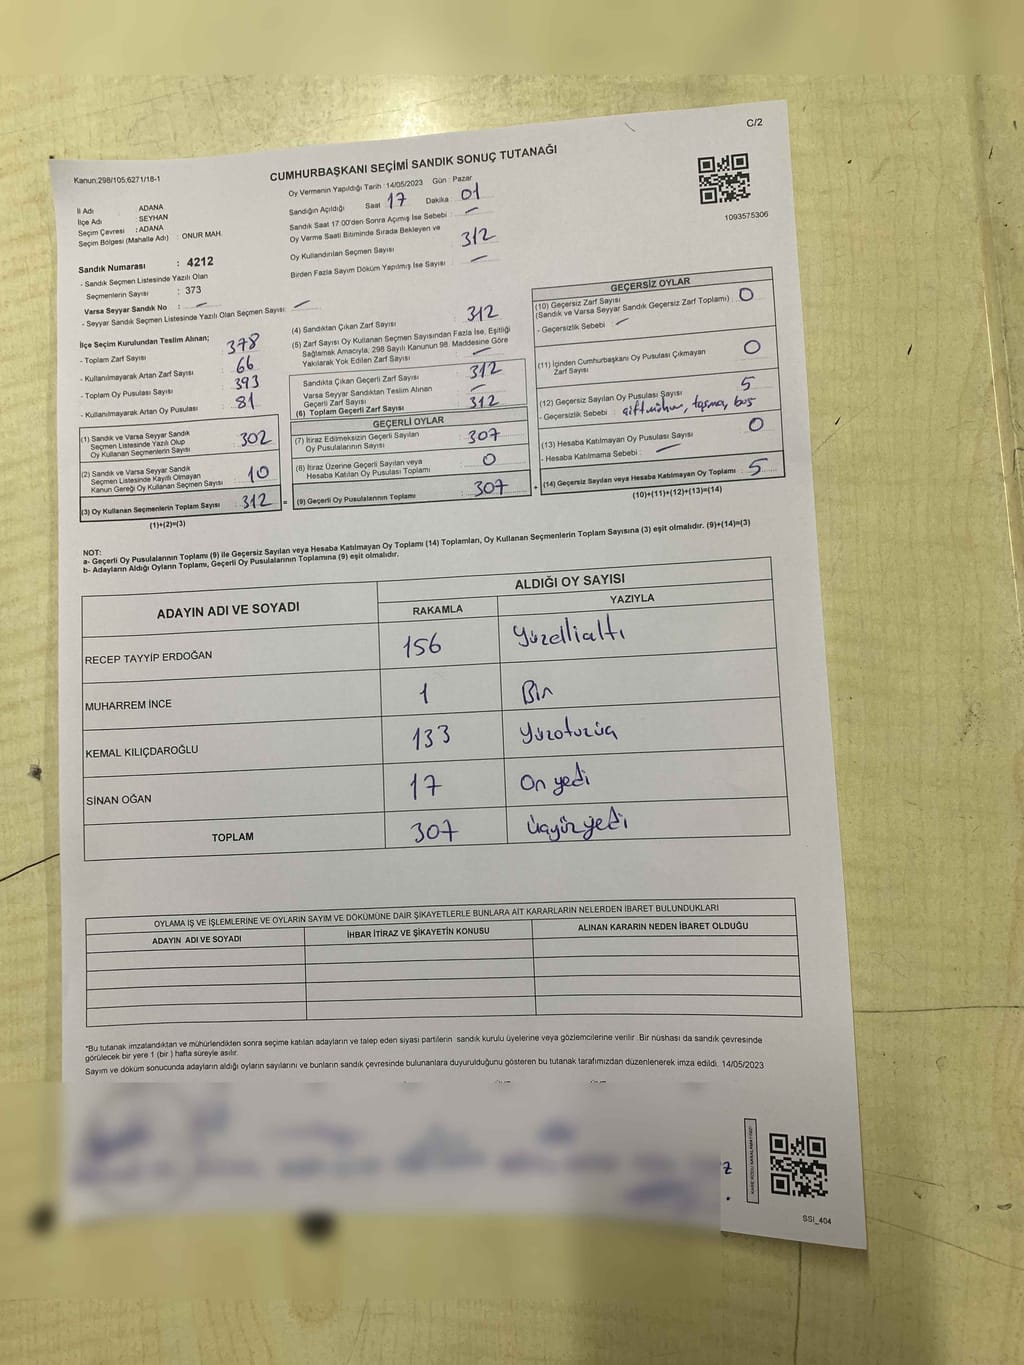 C/2
Kanun;298/105;6271/18-1
CUMHURBAŞKANI SEÇİMİ SANDIK SONUÇ TUTANAĞI
1093575306
İl Adı : ADANA
İlçe Adı : SEYHAN
Seçim Çevresi : ADANA
Seçim Bölgesi (Mahalle Adı) : ONUR MAH.
Oy Vermenin Yapıldığı Tarih : 14/05/2023 Gün : Pazar
Sandığın Açıldığı Saat : 17 Dakika : 01
Sandık Saat 17:00'den Sonra Açımış İse Sebebi : —
Oy Verme Saati Bitiminde Sırada Bekleyen ve
Oy Kullandırılan Seçmen Sayısı : 312
Birden Fazla Sayım Döküm Yapılmış İse Sayısı : —
Sandık Numarası : 4212
- Sandık Seçmen Listesinde Yazılı Olan
Seçmenlerin Sayısı : 373
Varsa Seyyar Sandık No : —
- Seyyar Sandık Seçmen Listesinde Yazılı Olan Seçmen Sayısı: —
İlçe Seçim Kurulundan Teslim Alınan;
- Toplam Zarf Sayısı : 378
- Kullanılmayarak Artan Zarf Sayısı : 66
- Toplam Oy Pusulası Sayısı : 393
- Kullanılmayarak Artan Oy Pusulası : 81
(1) Sandık ve Varsa Seyyar Sandık
Seçmen Listesinde Yazılı Olup
Oy Kullanan Seçmenlerin Sayısı : 302
(2) Sandık ve Varsa Seyyar Sandık
Seçmen Listesinde Kayıtlı Olmayan
Kanun Gereği Oy Kullanan Seçmen Sayısı : 10
(3) Oy Kullanan Seçmenlerin Toplam Sayısı : 312
(1)+(2)=(3)
(4) Sandıktan Çıkan Zarf Sayısı : 312
(5) Zarf Sayısı Oy Kullanan Seçmen Sayısından Fazla İse, Eşitliği
Sağlamak Amacıyla, 298 Sayılı Kanunun 98. Maddesine Göre
Yakılarak Yok Edilen Zarf Sayısı : —
Sandıkta Çıkan Geçerli Zarf Sayısı : 312
Varsa Seyyar Sandıktan Teslim Alınan
Geçerli Zarf Sayısı : —
(6) Toplam Geçerli Zarf Sayısı : 312
GEÇERLİ OYLAR
(7) İtiraz Edilmeksizin Geçerli Sayılan
Oy Pusulalarının Sayısı : 307
(8) İtiraz Üzerine Geçerli Sayılan veya
Hesaba Katılan Oy Pusulası Toplamı : 0
= (9) Geçerli Oy Pusulalarının Toplamı : 307
GEÇERSİZ OYLAR
(10) Geçersiz Zarf Sayısı
(Sandık ve Varsa Seyyar Sandık Geçersiz Zarf Toplamı) : 0
- Geçersizlik Sebebi : —
(11) İçinden Cumhurbaşkanı Oy Pusulası Çıkmayan
Zarf Sayısı : 0
(12) Geçersiz Sayılan Oy Pusulası Sayısı : 5
- Geçersizlik Sebebi : çift mühür, taşma, boş
(13) Hesaba Katılmayan Oy Pusulası Sayısı : 0
- Hesaba Katılmama Sebebi : —
+ (14) Geçersiz Sayılan veya Hesaba Katılmayan Oy Toplamı : 5
(10)+(11)+(12)+(13)=(14)
NOT:
a- Geçerli Oy Pusulalarının Toplamı (9) ile Geçersiz Sayılan veya Hesaba Katılmayan Oy Toplamı (14) Toplamları, Oy Kullanan Seçmenlerin Toplam Sayısına (3) eşit olmalıdır. (9)+(14)=(3)
b- Adayların Aldığı Oyların Toplamı, Geçerli Oy Pusulalarının Toplamına (9) eşit olmalıdır.
ADAYIN ADI VE SOYADI ALDIĞI OY SAYISI
RAKAMLA YAZIYLA
RECEP TAYYİP ERDOĞAN 156 Yüzellialtı
MUHARREM İNCE 1 Bir
KEMAL KILIÇDAROĞLU 133 Yüzotuzüç
SİNAN OĞAN 17 On yedi
TOPLAM 307 Üçyüzyedi
OYLAMA İŞ VE İŞLEMLERİNE VE OYLARIN SAYIM VE DÖKÜMÜNE DAİR ŞİKAYETLERLE BUNLARA AİT KARARLARIN NELERDEN İBARET BULUNDUKLARI
ADAYIN ADI VE SOYADI İHBAR İTİRAZ VE ŞİKAYETİN KONUSU ALINAN KARARIN NEDEN İBARET OLDUĞU
*Bu tutanak imzalandıktan ve mühürlendikten sonra seçime katılan adayların ve talep eden siyasi partilerin sandık kurulu üyelerine veya gözlemcilerine verilir. Bir nüshası da sandık çevresinde
görülecek bir yere 1 (bir ) hafta süreyle asılır.
Sayım ve döküm sonucunda adayların aldığı oyların sayılarını ve bunların sandık çevresinde bulunanlara duyurulduğunu gösteren bu tutanak tarafımızdan düzenlenerek imza edildi. 14/05/2023
SSI_404